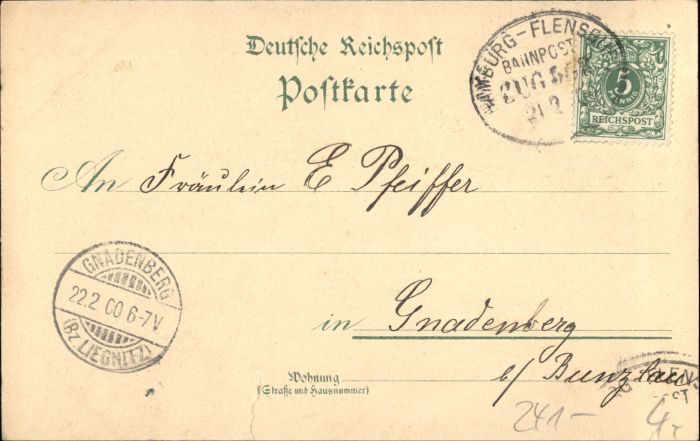 Deutsche Reichspost
Postkarte
HAMBURG-FLENSBURG
BAHNPOST
ZUG
21 2
5
REICHSPOST
An Fräulein E Pfeiffer
GNADENBERG
22.2 00 6-7V
(BZ. LIEGNITZ)
in Gnadenberg
b/ Bunzlau
Wohnung
(Straße und Hausnummer)
241-